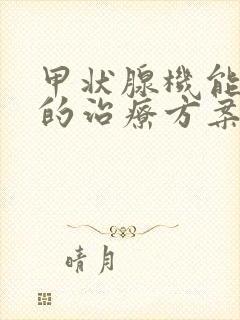 甲状腺機能
的治療方案
晴月